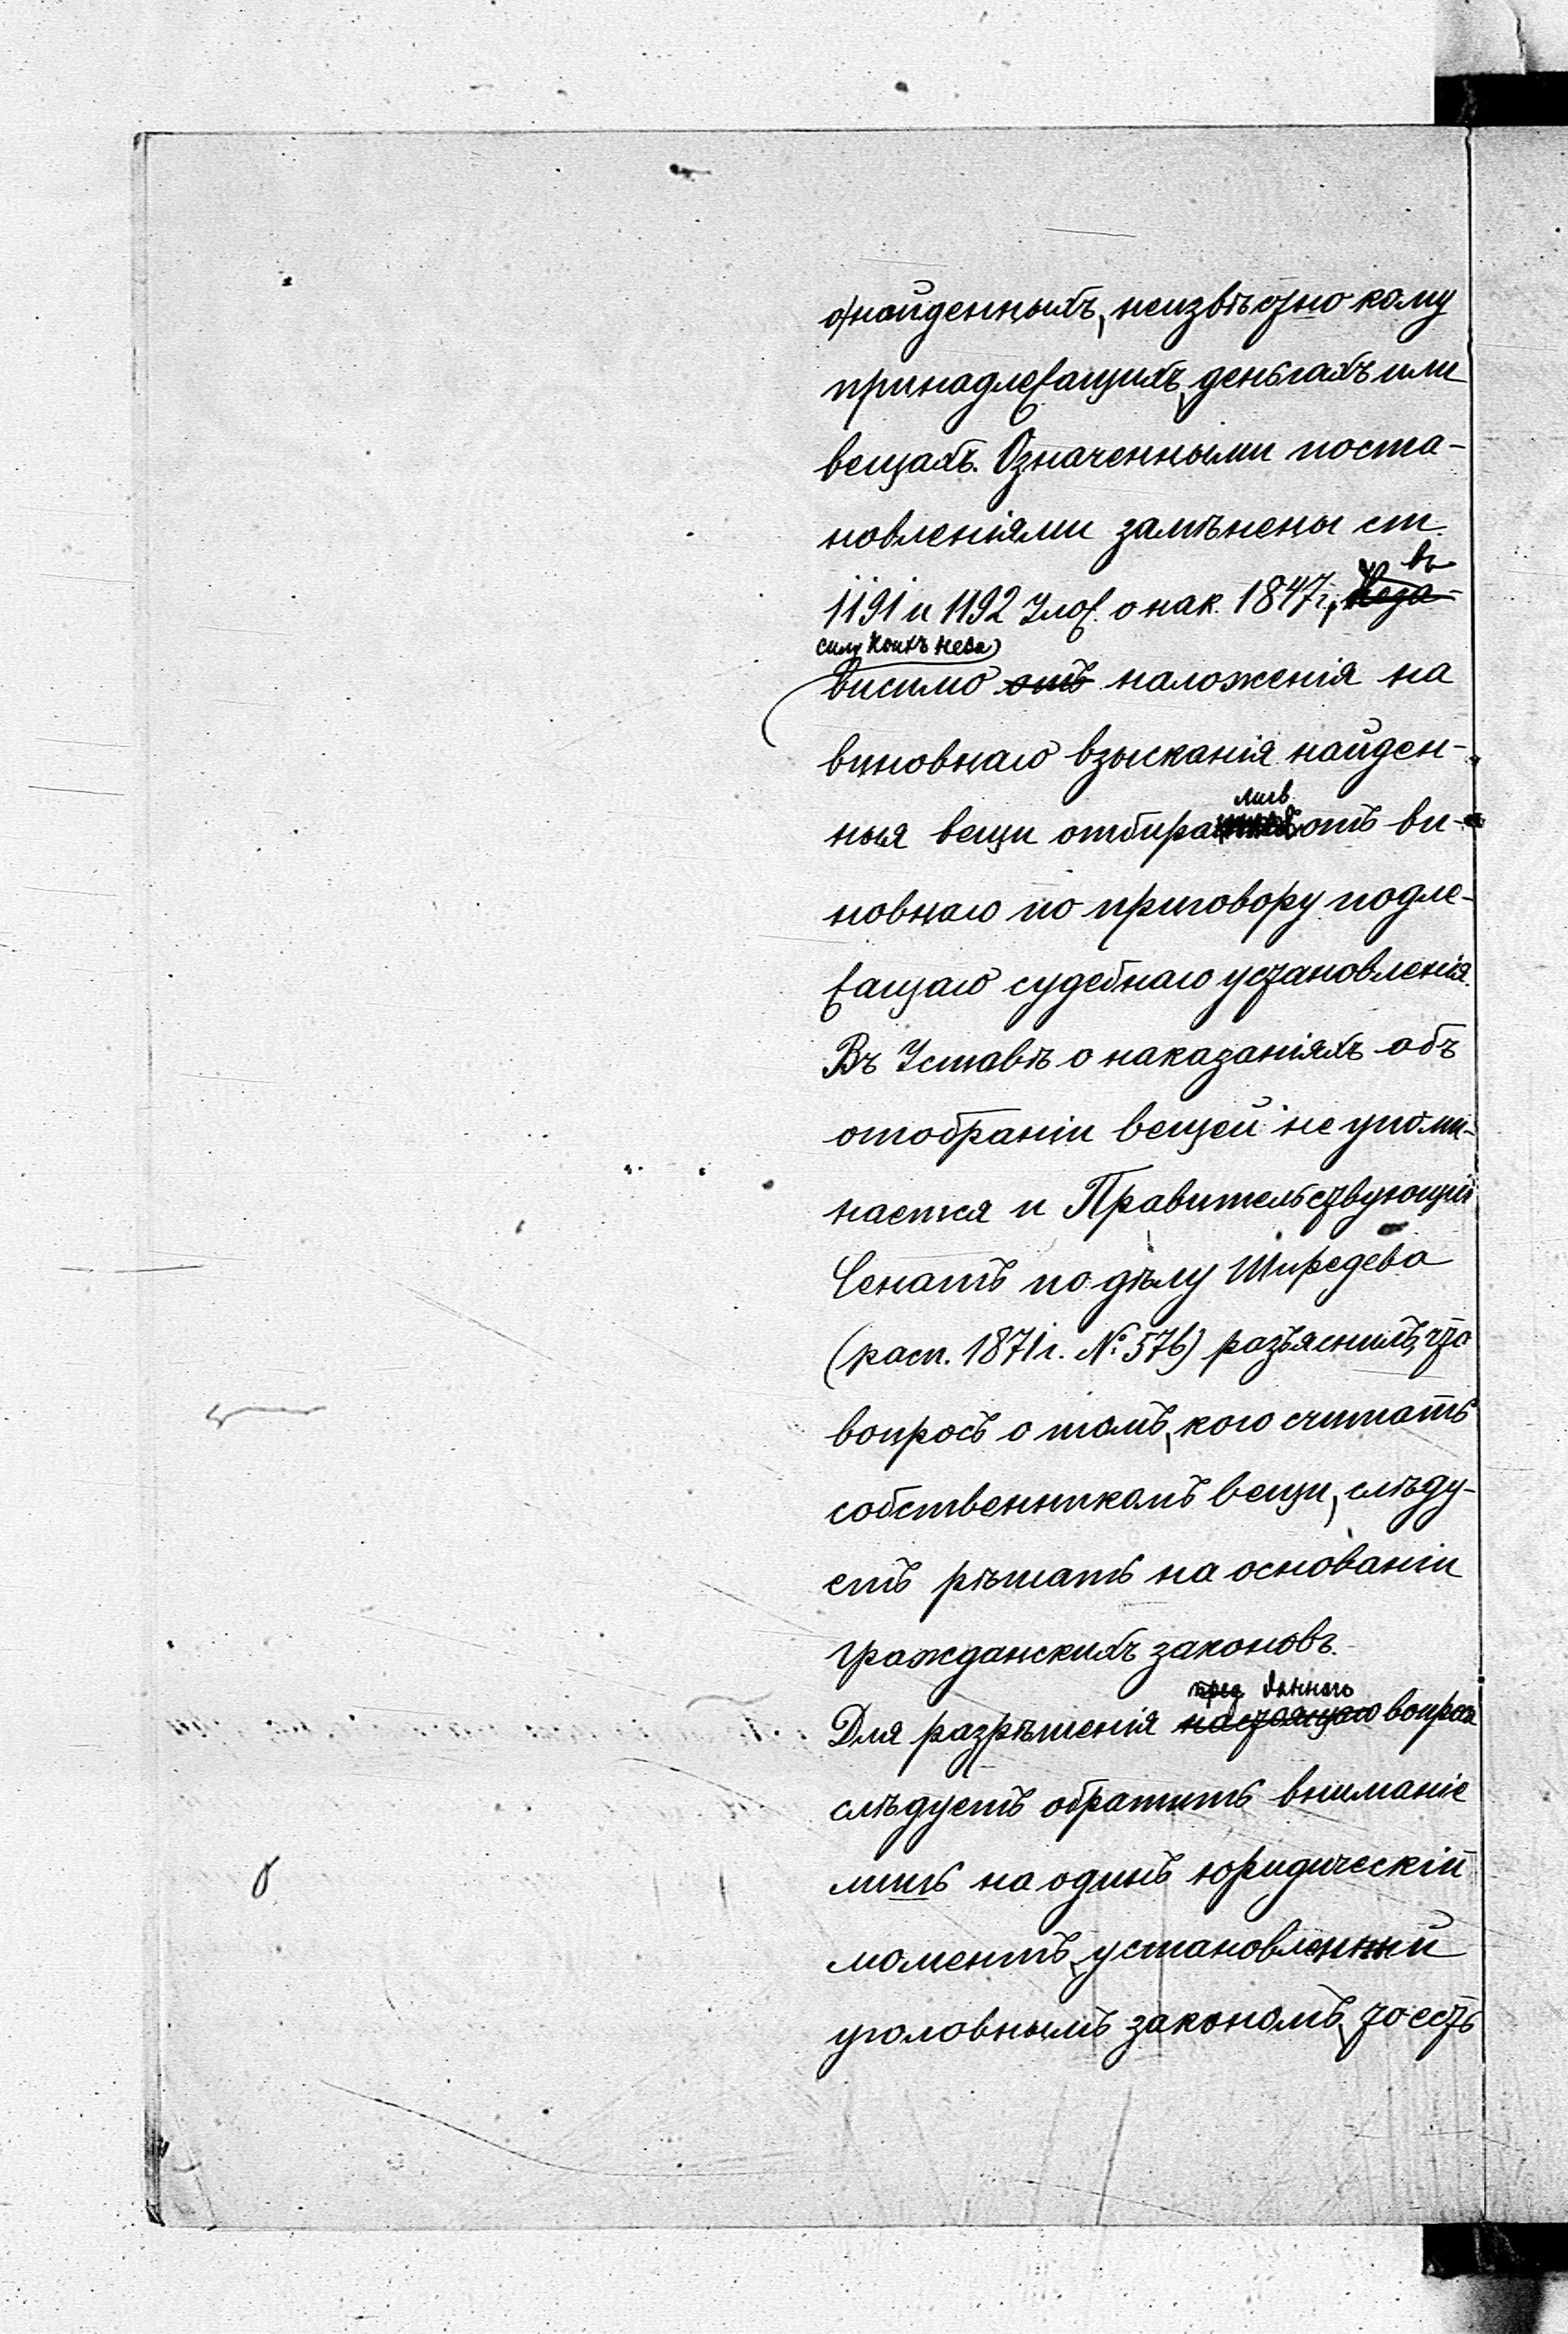 о найденныхъ, неизвѣстно кому
принадлежащихъ, деньгахъ или
вещахъ. Означенными поста-
новленіями замѣнены ст.
1191 и 1192 Улож. о нак. 1847 г., въ
силу коихъ неза
висимо наложенія на
виновнаго взысканія найден-
ныя вещи отбирались отъ ви-
новнаго по приговору подле-
жащаго судебнаго установленія.
Въ Уставѣ о наказаніяхъ объ
отобраніи вещей не упоми-
нается и Правительствующій
Сенатъ по дѣлу Ширедева
(касп. 1871 г. № 576) разъяснилъ, что
вопросъ о томъ, кого считать
собственникомъ вещи, слѣду-
етъ рѣшать на основаніи
гражданскихъ законовъ.
Для разрѣшенія даннаго вопроса
слѣдуетъ обратить вниманіе
лишь на одинъ юридическій
моментъ, установленный
уголовнымъ закономъ, то есть